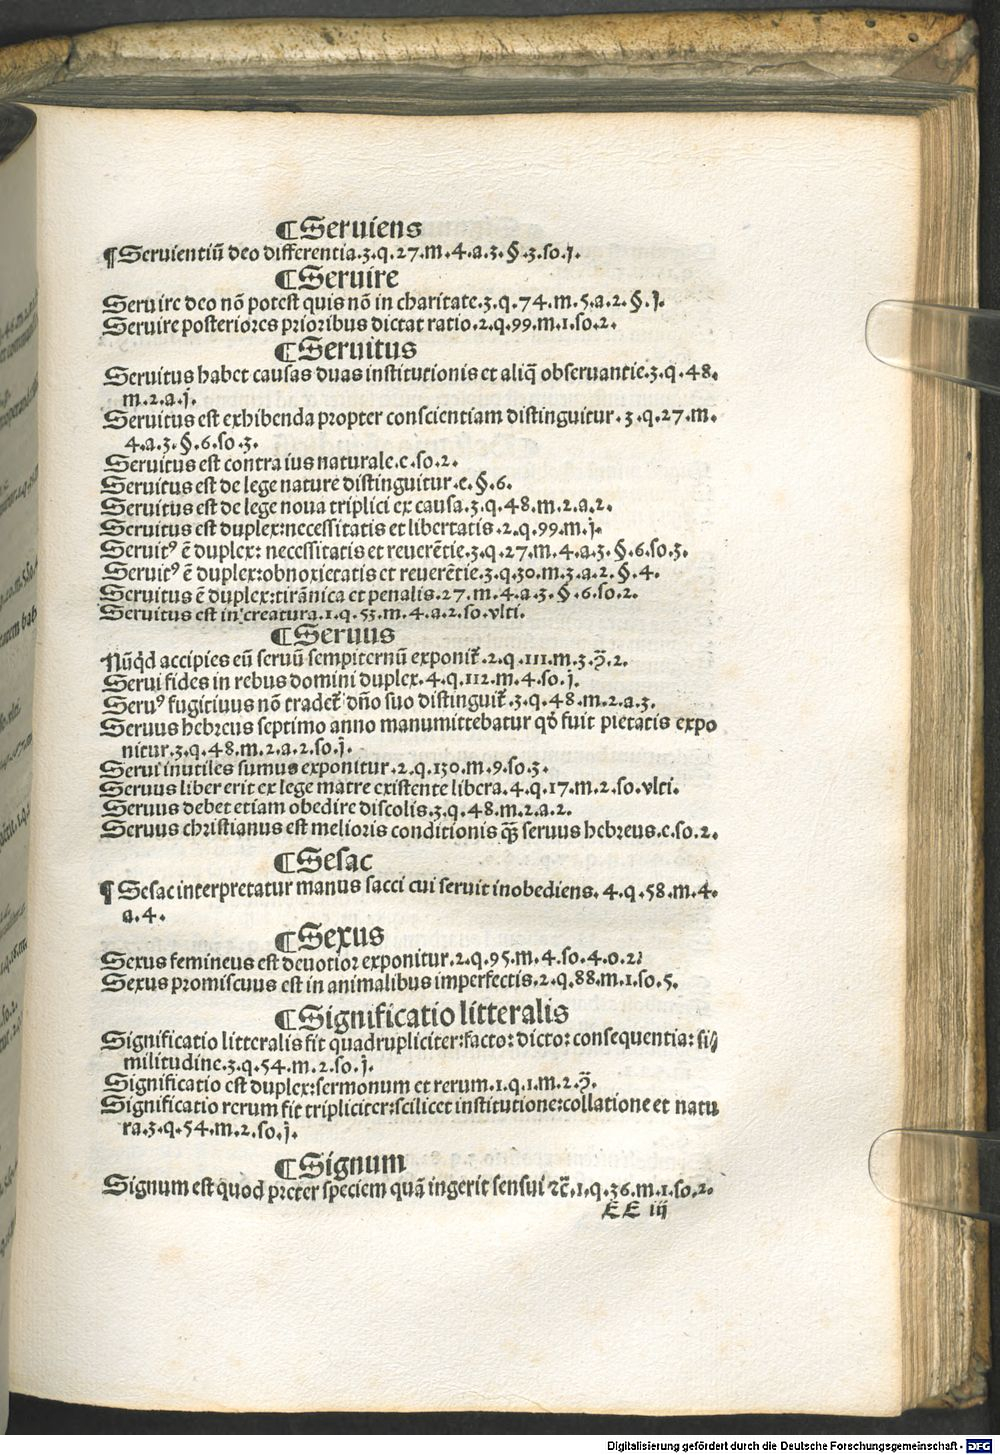 ¶Seruiens
¶Seruientiū deo differentia.3.q.27.m.4.a.3.§.3.so.j.
¶Seruire
Seruire deo nō potest quis nō in charitate.3.q.74.m.5.a.2.§.j.
Seruire posteriores prioribus dictat ratio.2.q.99.m.1.so.2.
¶Seruitus
Seruitus habet causas duas institutionis et aliq̄ obseruantie.3.q.48.
m.2.a.j.
Seruitus est exhibenda propter conscientiam distinguitur.3.q.27.m.
4.a.3.§.6.so.3.
Seruitus est contra ius naturale.e.so.2.
Seruitus est de lege nature distinguitur.e.§.6.
Seruitus est de lege noua triplici ex causa.3.q.48.m.2.a.2.
Seruitus est duplex:necessitatis et libertatis.2.q.99.m.j.
Seruitꝰ ē duplex: necessitatis et reuerētie.3.q.27.m.4.a.3.§.6.so.3.
Seruitꝰ ē duplex:obnoxietatis et reuerētie.3.q.30.m.3.a.2.§.4.
Seruitus ē duplex:tirānica et penalis.27.m.4.a.3.§.6.so.2.
Seruitus est in creatura.1.q.53.m.4.a.2.so.vlti.
¶Seruus
Nūq̄d accipies eū seruū sempiternū exponit̄.2.q.111.m.3.ꝯ̄.2.
Serui fides in rebus domini duplex.4.q.112.m.4.so.j.
Seruꝰ fugitiuus nō tradet̄ dn̄o suo distinguit̄.3.q.48.m.2.a.3.
Seruus hebreus septimo anno manumittebatur qd̄ fuit pietatis expo
nitur.3.q.48.m.2.a.2.so.j.
Serui inutiles sumus exponitur.2.q.130.m.9.so.3.
Seruus liber erit ex lege matre existente libera.4.q.17.m.2.so.vlti.
Seruus debet etiam obedire discolis.3.q.48.m.2.a.2.
Seruus christianus est melioris conditionis qꝫ̄ seruus hebreus.e.so.2.
¶Sesac
¶Sesac interpretatur manus sacci cui seruit inobediens.4.q.58.m.4.
a.4.
¶Sexus
Sexus femineus est deuotior exponitur.2.q.95.m.4.so.4.o.2.
Sexus promiscuus est in animalibus imperfectis.2.q.88.m.1.so.5.
¶Significatio litteralis
Significatio litteralis fit quadrupliciter:facto:dicto:consequentia:si⸗
militudine.3.q.54.m.2.so.j.
Significatio est duplex:sermonum et rerum.1.q.1.m.2.ꝯ̄.
Significatio rerum fit tripliciter:scilicet institutione:collatione et natu
ra.3.q.54.m.2.so.j.
¶Signum
Signum est quod preter speciem quā ingerit sensui ⁊c̄.1.q.36.m.1.so.2.
EE iij
Digitalisierung gefördert durch die Deutsche Forschungsgemeinschaft - DFG